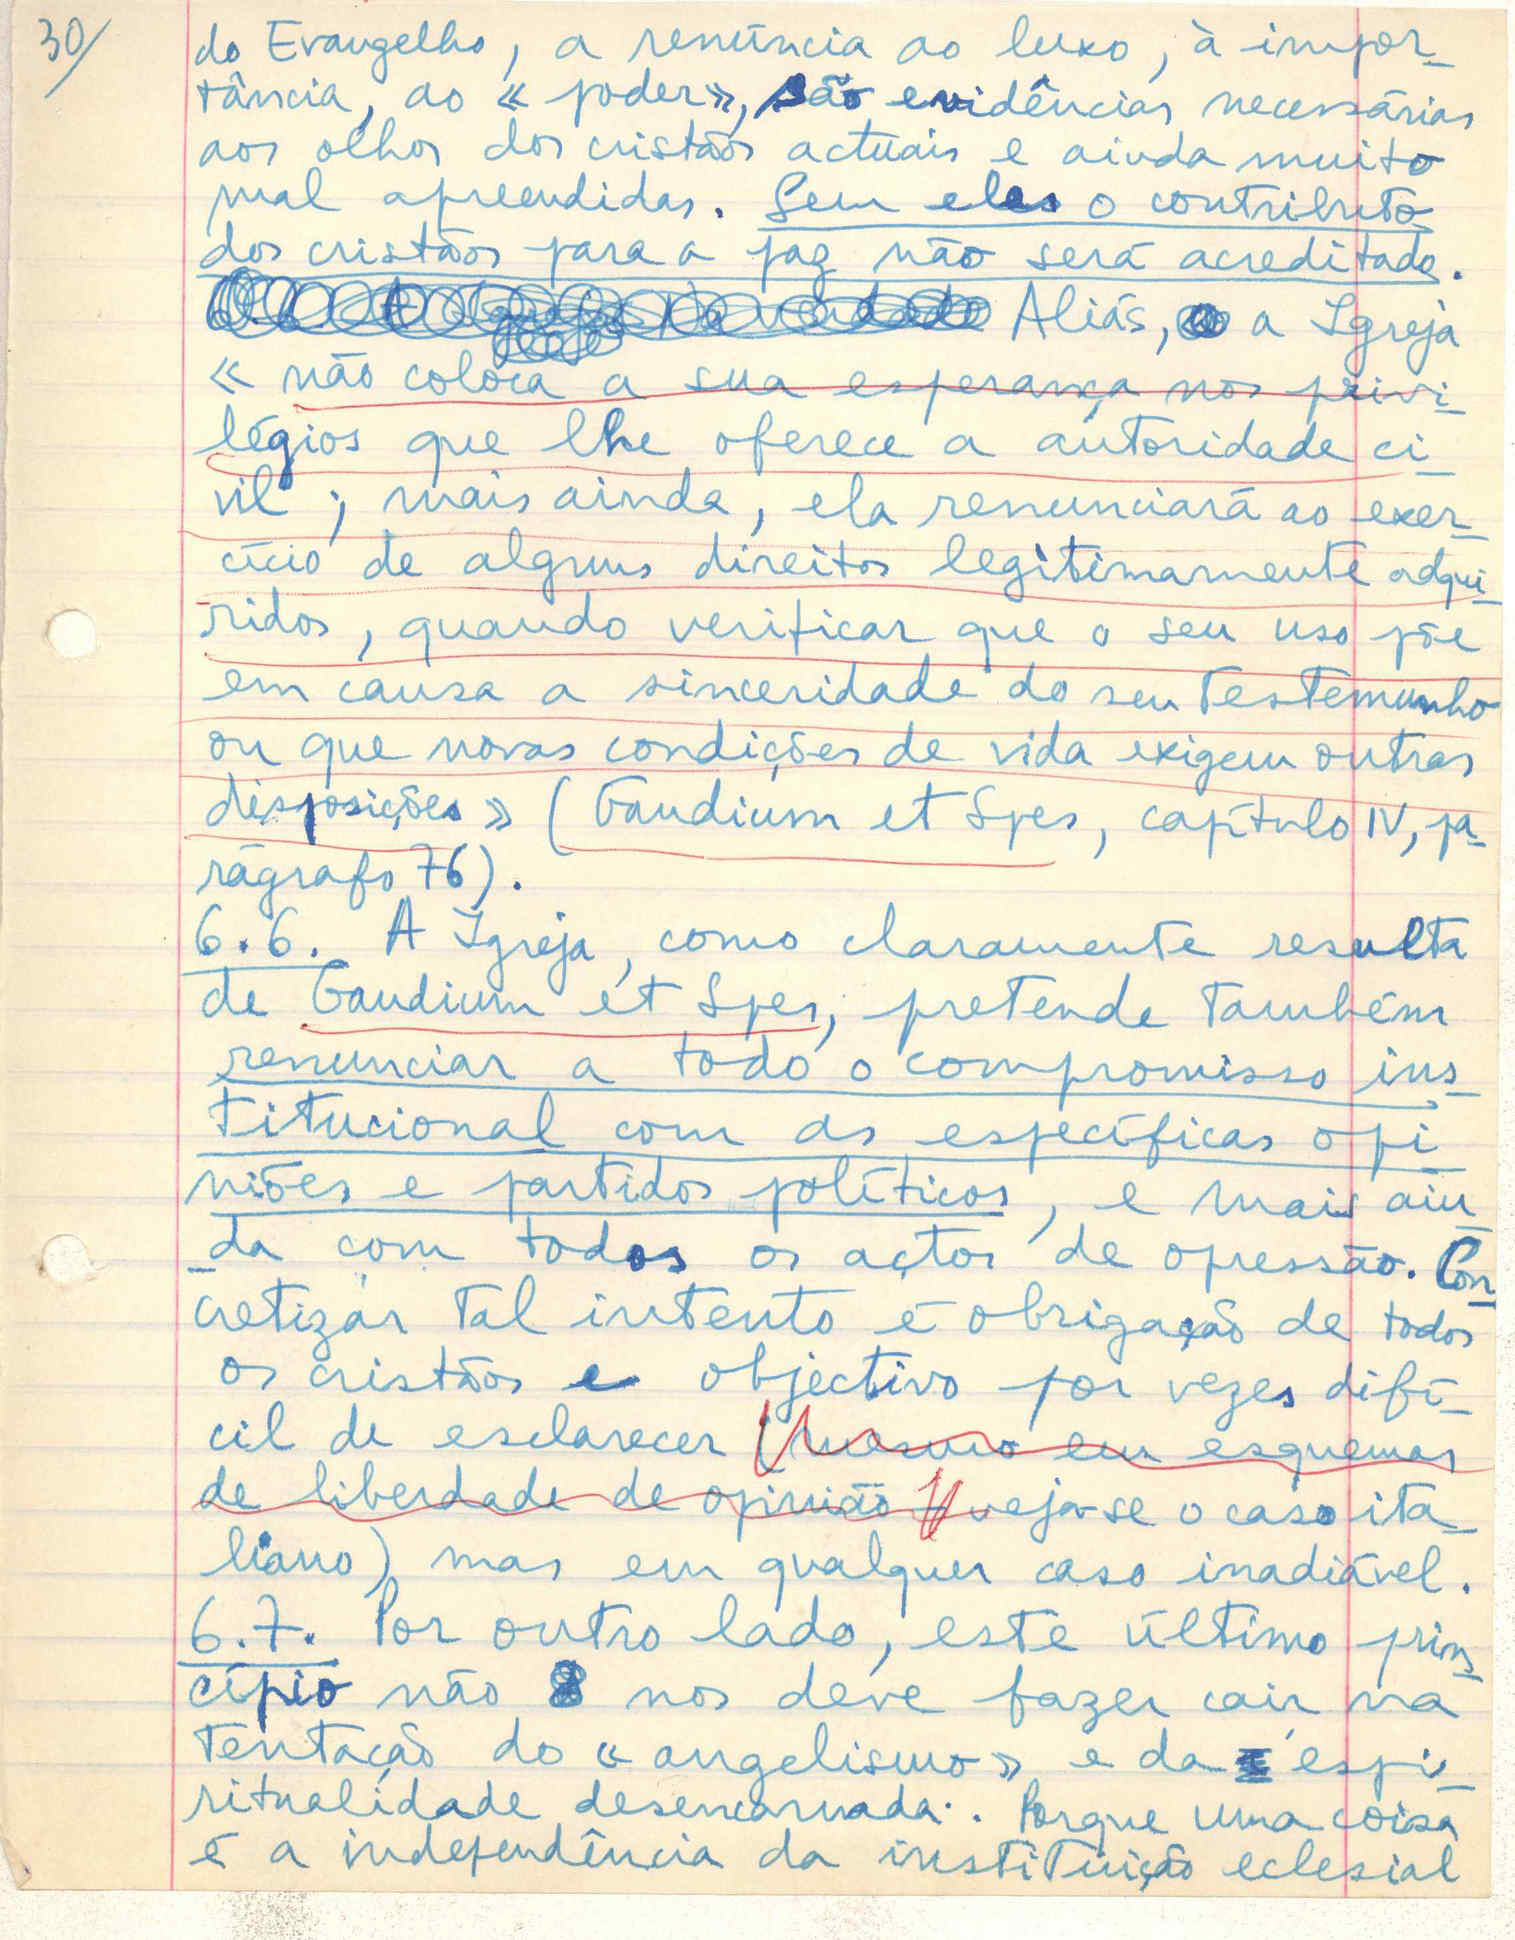 30/
do Evangelho, a renúncia ao luxo, à impor-
tância, ao « poder», são evidências necessárias
aos olhos dos cristãos actuais e ainda muito
mal apreendidas. Sem eles o contributo
dos cristãos para a paz não será acreditado.
Aliás, a Igreja
« não coloca a sua esperança nos privi-
légios que lhe oferece a autoridade ci-
vil ; mais ainda, ela renunciará ao exer-
cício de alguns direitos legitimamente adqui-
ridos, quando verificar que o seu uso põe
em causa a sinceridade do seu testemunho
ou que novas condições de vida exigem outras
disposições » (Gaudium et Spes, capítulo IV, pa-
rágrafo 76).
6.6. A Igreja, como claramente resulta
de Gaudium et Spes, pretende também
renunciar a todo o compromisso ins-
titucional com as específicas opi-
niões e partidos políticos, e mais ain-
da com todos os actos de opressão. Con-
cretizar tal intento é obrigação de todos
os cristãos e objectivo por vezes difí-
cil de esclarecer (mesmo em esquemas
de liberdade de opinião - veja-se o caso ita-
liano) mas em qualquer caso inadiável.
6.7. Por outro lado, este último prin-
cípio não nos deve fazer cair na
tentação do « angelismo » e da espi-
ritualidade desencarnada. Porque uma coisa
é a independência da instituição eclesial